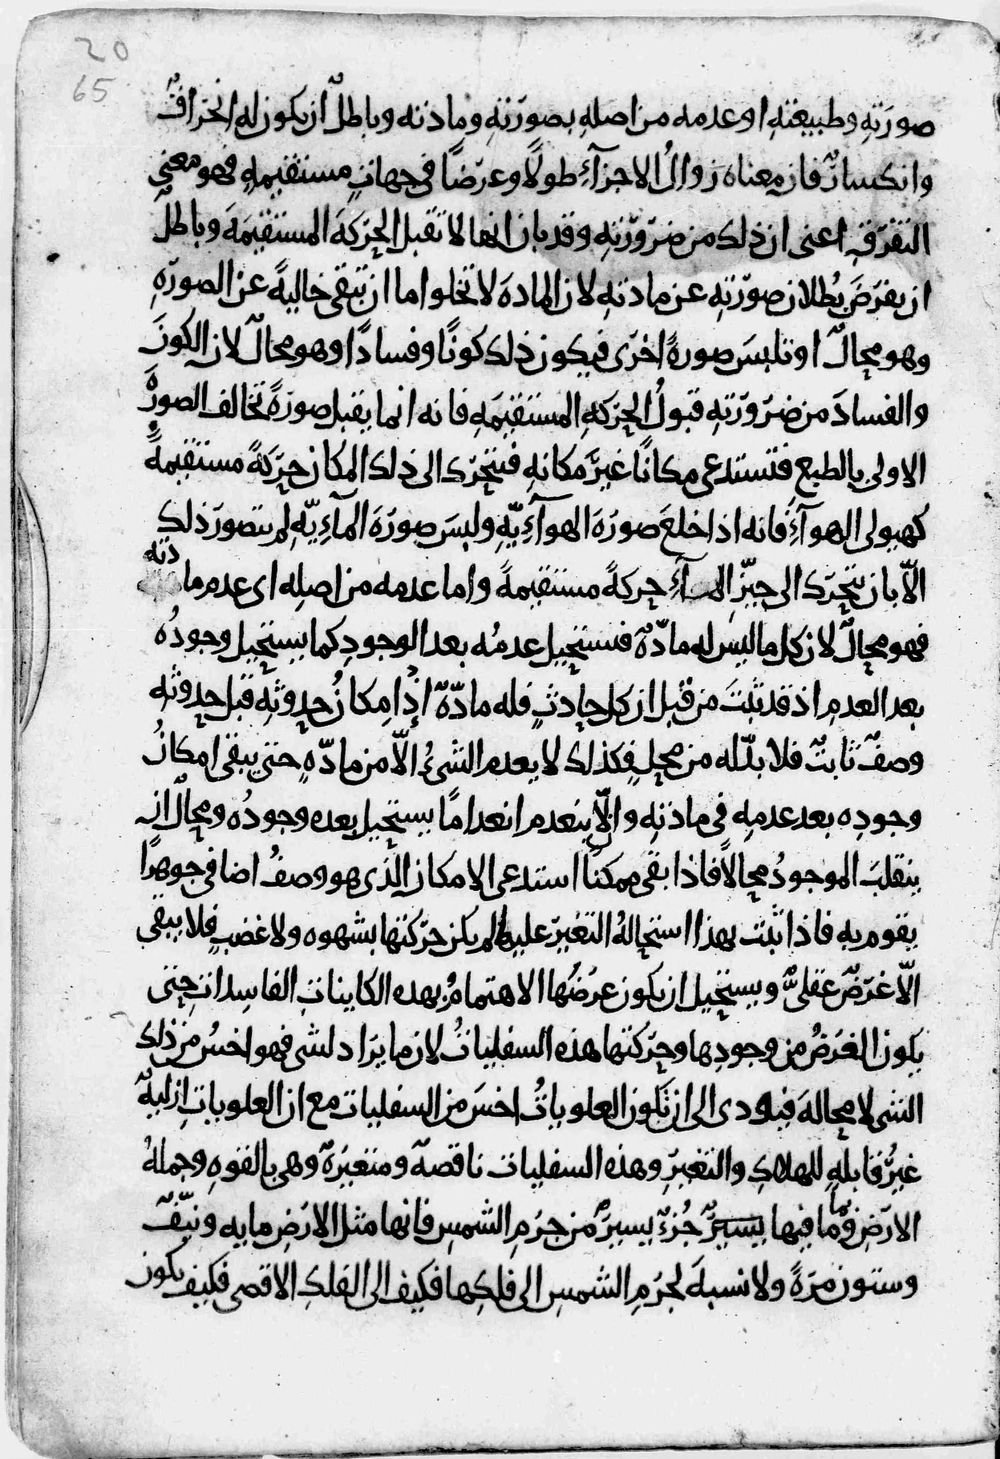 20
65
صورته وطبيعته او عدمه من اصله بصورته ومادته وباطلٌ ان يكون له انخراقٌ
وانكسارٌ فان معناه زوالُ الاجزآءِ طولًا وعرضًا فى جهاتٍ مستقيمهٍ فهو معنى
التفرّقِ اعنى ان ذلك من ضرورته وقد بان انها لا تقبل الحركهَ المستقيمهَ وباطلٌ
ان يفرضَ بُطلان صورته عن مادته لان المادهَ لا تخلوا اما ان تبقى خاليةً عن الصورهِ
وهو محالٌ او تلبسَ صورةً اخرى فيكون ذلك كونًا وفسادًا وهو محالٌ لان الكونَ
والفسادَ من ضرورته قبولُ الحركهِ المستقيمهِ فانه انما يقبل صورةً تخالف الصورهَ
الاولى بالطبع فتستدعى مكانًا غيرَ مكانهِ فيتحرّك الى ذلك المكان حركةً مستقيمةً
كهيولى الهوآءِ فانه اذا خلعَ صورهَ الهوآءِيّهِ ولبسَ صورهَ المآءِيّهِ لم يتصور ذلك
الّا بان يتحرّك الى حيّز المآءِ حركةً مستقيمةً واما عدمه من اصلِه اى عدم مادته
فهو محالٌ لان كل ما ليس له مادّهٌ فيستحيل عدمُه بعد الوجودِ كما يستحيل وجودُه
بعد العدمِ اذ قد ثبتَ من قبل ان كل حادثٍ فله مادّهٌ اذ امكانُ حدوثِه قبل حدوثِه
وصفٌ ثابتٌ فلا بدّ له من محلٍ فكذلك لا يعدم الشىءُ الّا من مادّهٍ حتى يبقى امكانُ
وجودِه بعد عدمِه فى مادتهِ والّا ينعدم انعدامًا يستحيل بعده وجودُه ومحالٌ ان
ينقلبَ الموجودُ محالًا فاذا بقى ممكنًا استدعى الامكان الذى هو وصفُ اضافى جوهرًا
يقوم به فاذا ثبت بهذا استحالهُ التغيّر عليها لم يكن حركتها بشهوه ولا غضبٍ فلا يبقى
الّا غرضٌ عقلىٌّ ويستحيل ان يكون غرضُها الاهتمامُ بهذه الكاينات الفاسدات حتى
يكون الغرضُ من وجودِها وحركتها هذه السفلياتُ لان ما يراد لشى فهو اخسُ من ذلك
الشى لا محالهَ فيؤدى الى ان تكون العلوياتُ اخسَ من السفليات مع ان العلوياتِ ازليهٌ
غيرُ قابلهٍ للهلاكِ والتغيرِ وهذه السفليات ناقصهٌ ومتغيّرهٌ وهى بالقوهِ وجملهُ
الارضِ وما فيها يسيرٌ جُزءٌ يسيرٌ من جرمِ الشمسِ فانها مثل الارضِ مايه ونيّفٌ
وستون مرةً ولا نسبهَ لجرم الشمسِ الى فلكِها فكيف الى الفلكِ الاقصى فكيف يكون